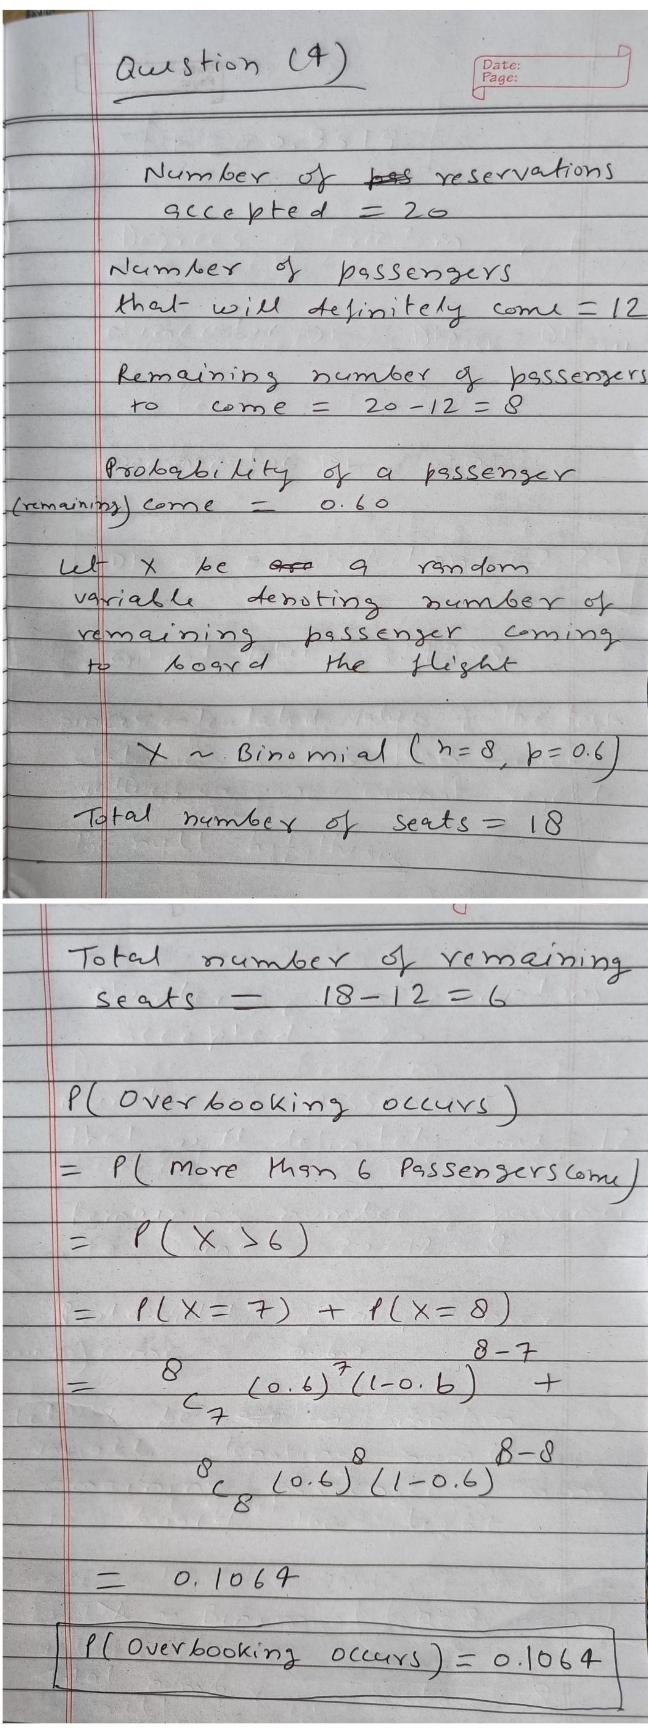 Question (4)
Date:
Page:
Number of reservations
accepted = 20
Number of passengers
that will definitely come = 12
Remaining number of passengers
to come = 20-12 = 8
Probability of a passenger
(remaining) come = 0.60
Let X be a random
variable denoting number of
remaining passenger coming
to board the flight
X ~ Binomial (n=8, p=0.6)
Total number of seats = 18
Total number of remaining
seats = 18-12 = 6
P( Overbooking occurs)
= P( More than 6 Passengers come)
= P( X >6)
= P(X=7) + P(X=8)
= ⁸C₇ (0.6)⁷ (1-0.6)⁸⁻⁷ +
⁸C₈ (0.6)⁸ (1-0.6)⁸⁻⁸
= 0.1064
P( Overbooking occurs) = 0.1064